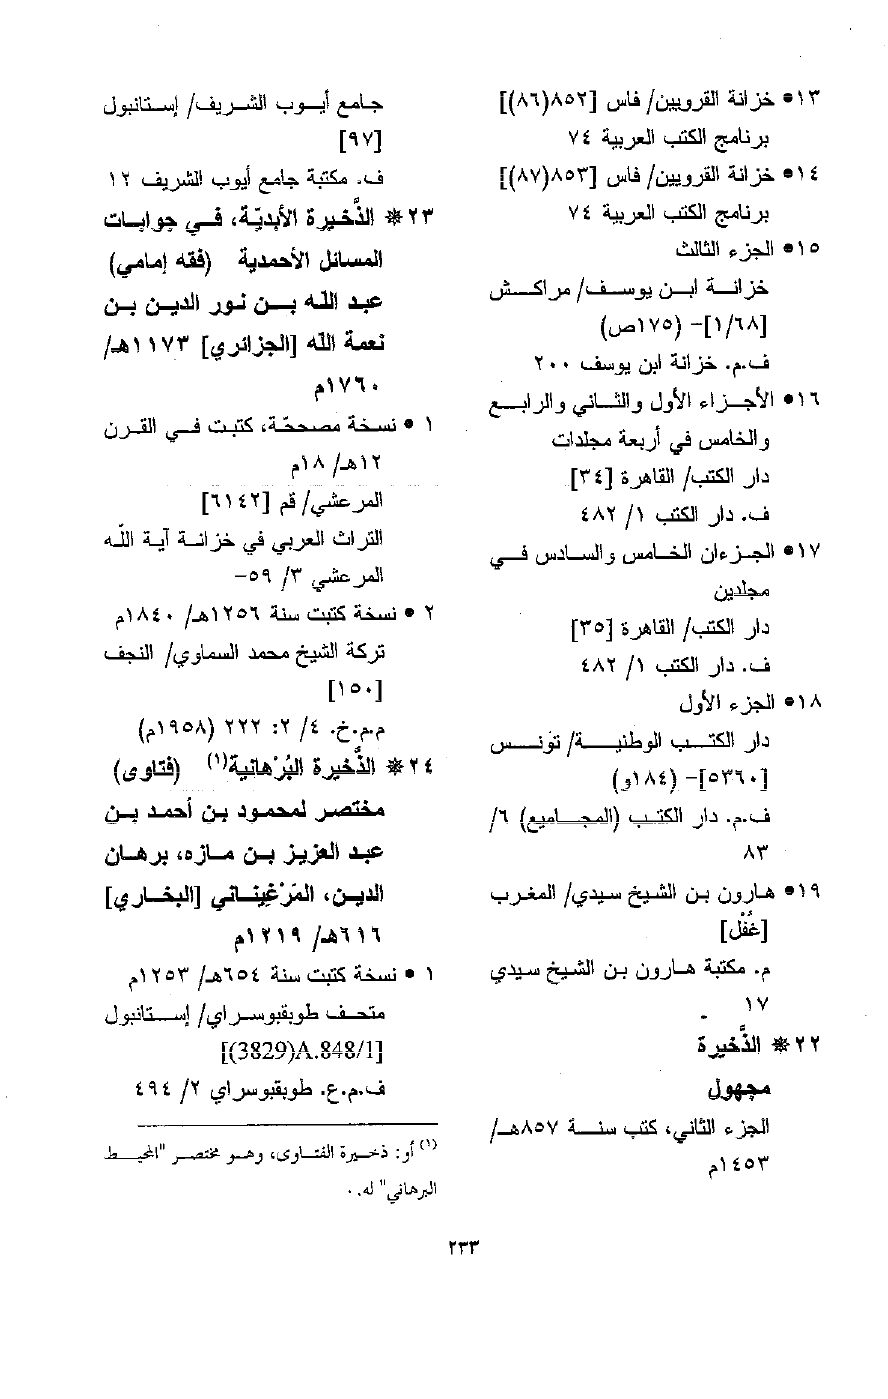 ١٣• خزانة القرويين/ فاس [٨٥٢(٨٦)]
برنامج الكتب العربية ٧٤
١٤• خزانة القرويين/ فاس [٨٥٣(٨٧)]
برنامج الكتب العربية ٧٤
١٥• الجزء الثالث
خزانة ابن يوسف/ مراكش
[١/٦٨]– (١٧٥ص)
ف.م. خزانة ابن يوسف ٢٠٠
١٦• الأجزاء الأول والثاني والرابع
والخامس في أربعة مجلدات
دار الكتب/ القاهرة [٣٤]
ف. دار الكتب ١/ ٤٨٢
١٧• الجزءان الخامس والسادس في
مجلدين
دار الكتب/ القاهرة [٣٥]
ف. دار الكتب ١/ ٤٨٢
١٨• الجزء الأول
دار الكتب الوطنية/ تونس
[٥٣٦٠]– (١٨٤و)
ف.م. دار الكتب (المجاميع) ٦/
٨٣
١٩• هارون بن الشيخ سيدي/ المغرب
[غُفْل]
م. مكتبة هارون بن الشيخ سيدي
١٧
٢٢* الذَّخيرة
مجهول
الجزء الثاني، كتب سنة ٨٥٧هـ/
١٤٥٣م
جامع أيوب الشريف/ إستانبول
[٩٧]
ف. مكتبة جامع أيوب الشريف ١٢
٢٣* الذَّخيرة الأبديّة، في جوابات
المسائل الأحمدية (فقه إمامي)
عبد الله بن نور الدين بن
نعمة الله [الجزائري] ١١٧٣هـ/
١٧٦٠م
١ • نسخة مصححّة، كتبت في القرن
١٢هـ/ ١٨م
المرعشي/ قم [٦١٤٢]
التراث العربي في خزانة آية اللّه
المرعشي ٣/ ٥٩–
٢ • نسخة كتبت سنة ١٢٥٦هـ/ ١٨٤٠م
تركة الشيخ محمد السماوي/ النجف
[١٥٠]
م.م.خ. ٤/ ٢: ٢٢٢ (١٩٥٨م)
٢٤* الذَّخيرة البُرْهانية(١) (فتاوى)
مختصر لمحمود بن أحمد بن
عبد العزيز بن مازه، برهان
الدين، المَرْغِيناني [البخاري]
٦١٦هـ/ ١٢١٩م
١ • نسخة كتبت سنة ٦٥٤هـ/ ١٢٥٣م
متحف طوبقبوسراي/ إستانبول
[(3829)A.848/1]
ف.م.ع. طوبقبوسراي ٢/ ٤٩٤
(١) أو: ذخيرة الفتاوى، وهو مختصر "المحيط
البرهاني" له.
٢٣٣